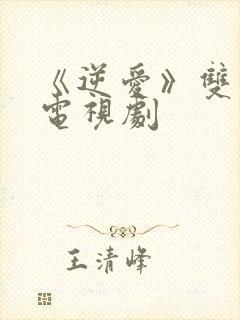 《逆愛》雙
電視劇
王清峰